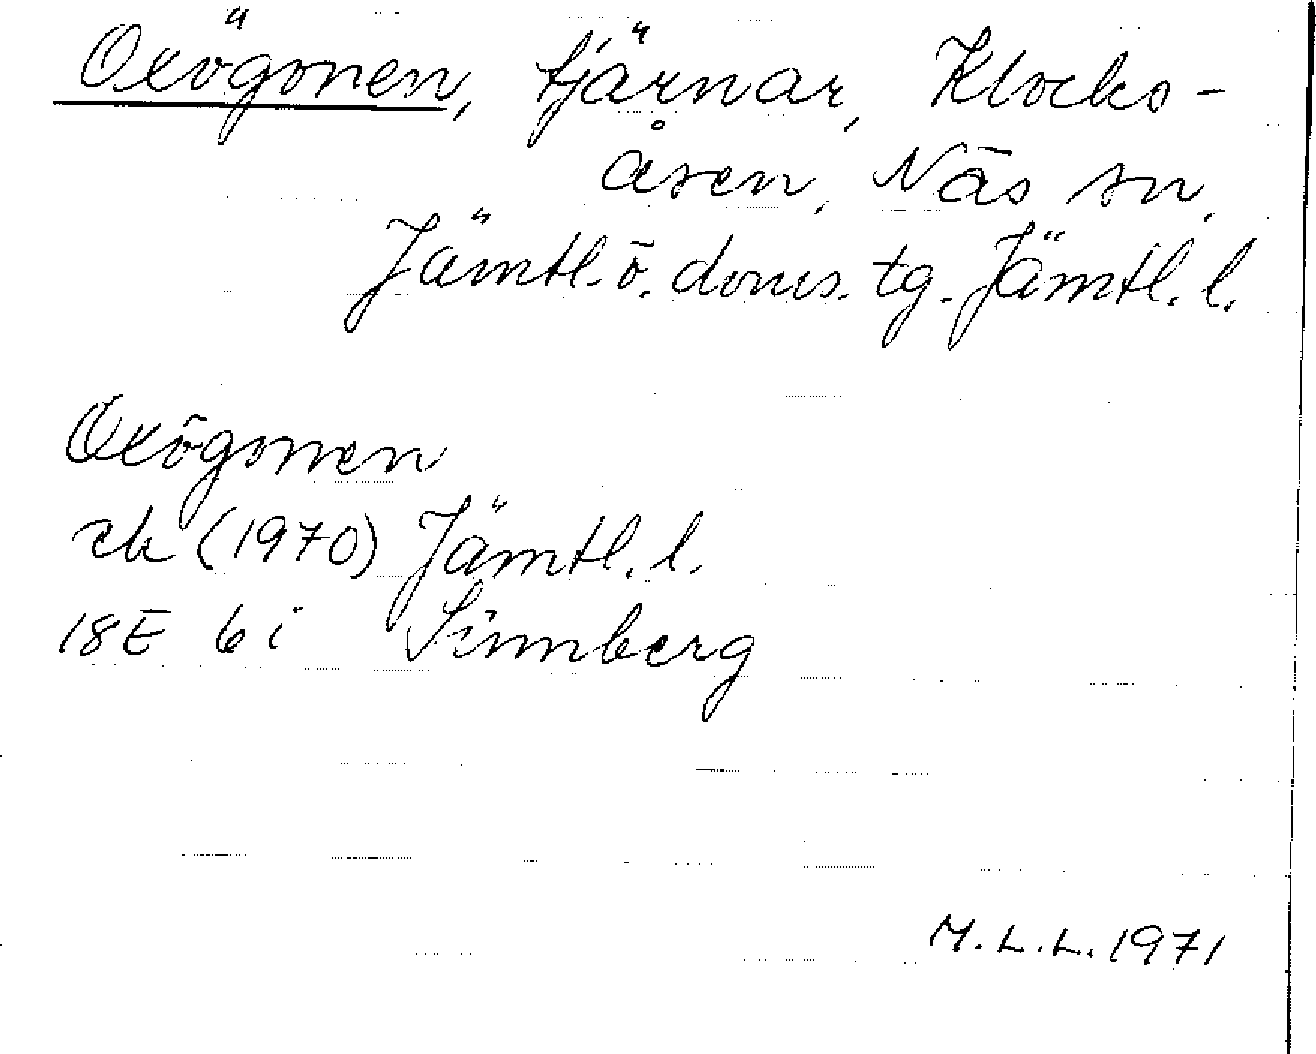 Oxögonen, tjärnar, Klocks-
åsen, Näs sn,
Jämtl. ö. doms. tg. Jämtl. l.
Oxögonen
ek (1970) Jämtl. l.
18E 6i Sinnberg
M.L.L. 1971